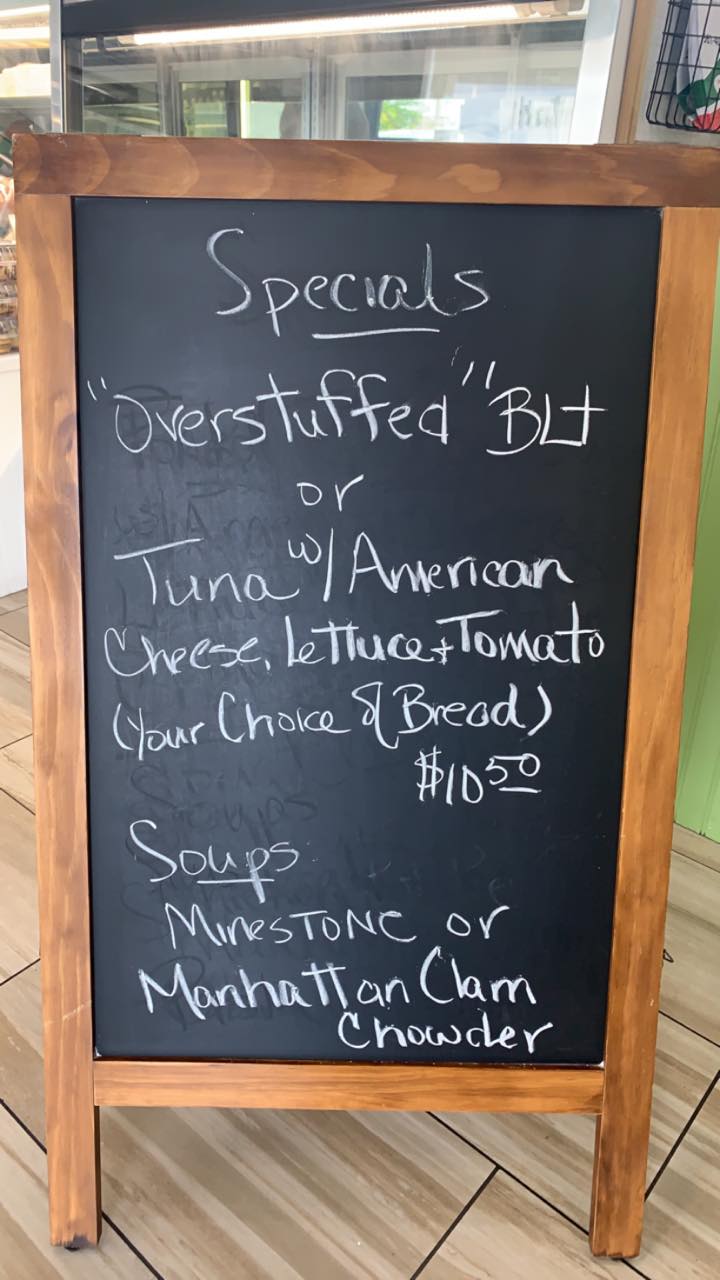 Specials
"Overstuffed" BLT
or
Tuna w/ American
Cheese, Lettuce + Tomato
(Your Choice of Bread)
$10 50
Soups
MinesTONE or
Manhattan Clam
Chowder